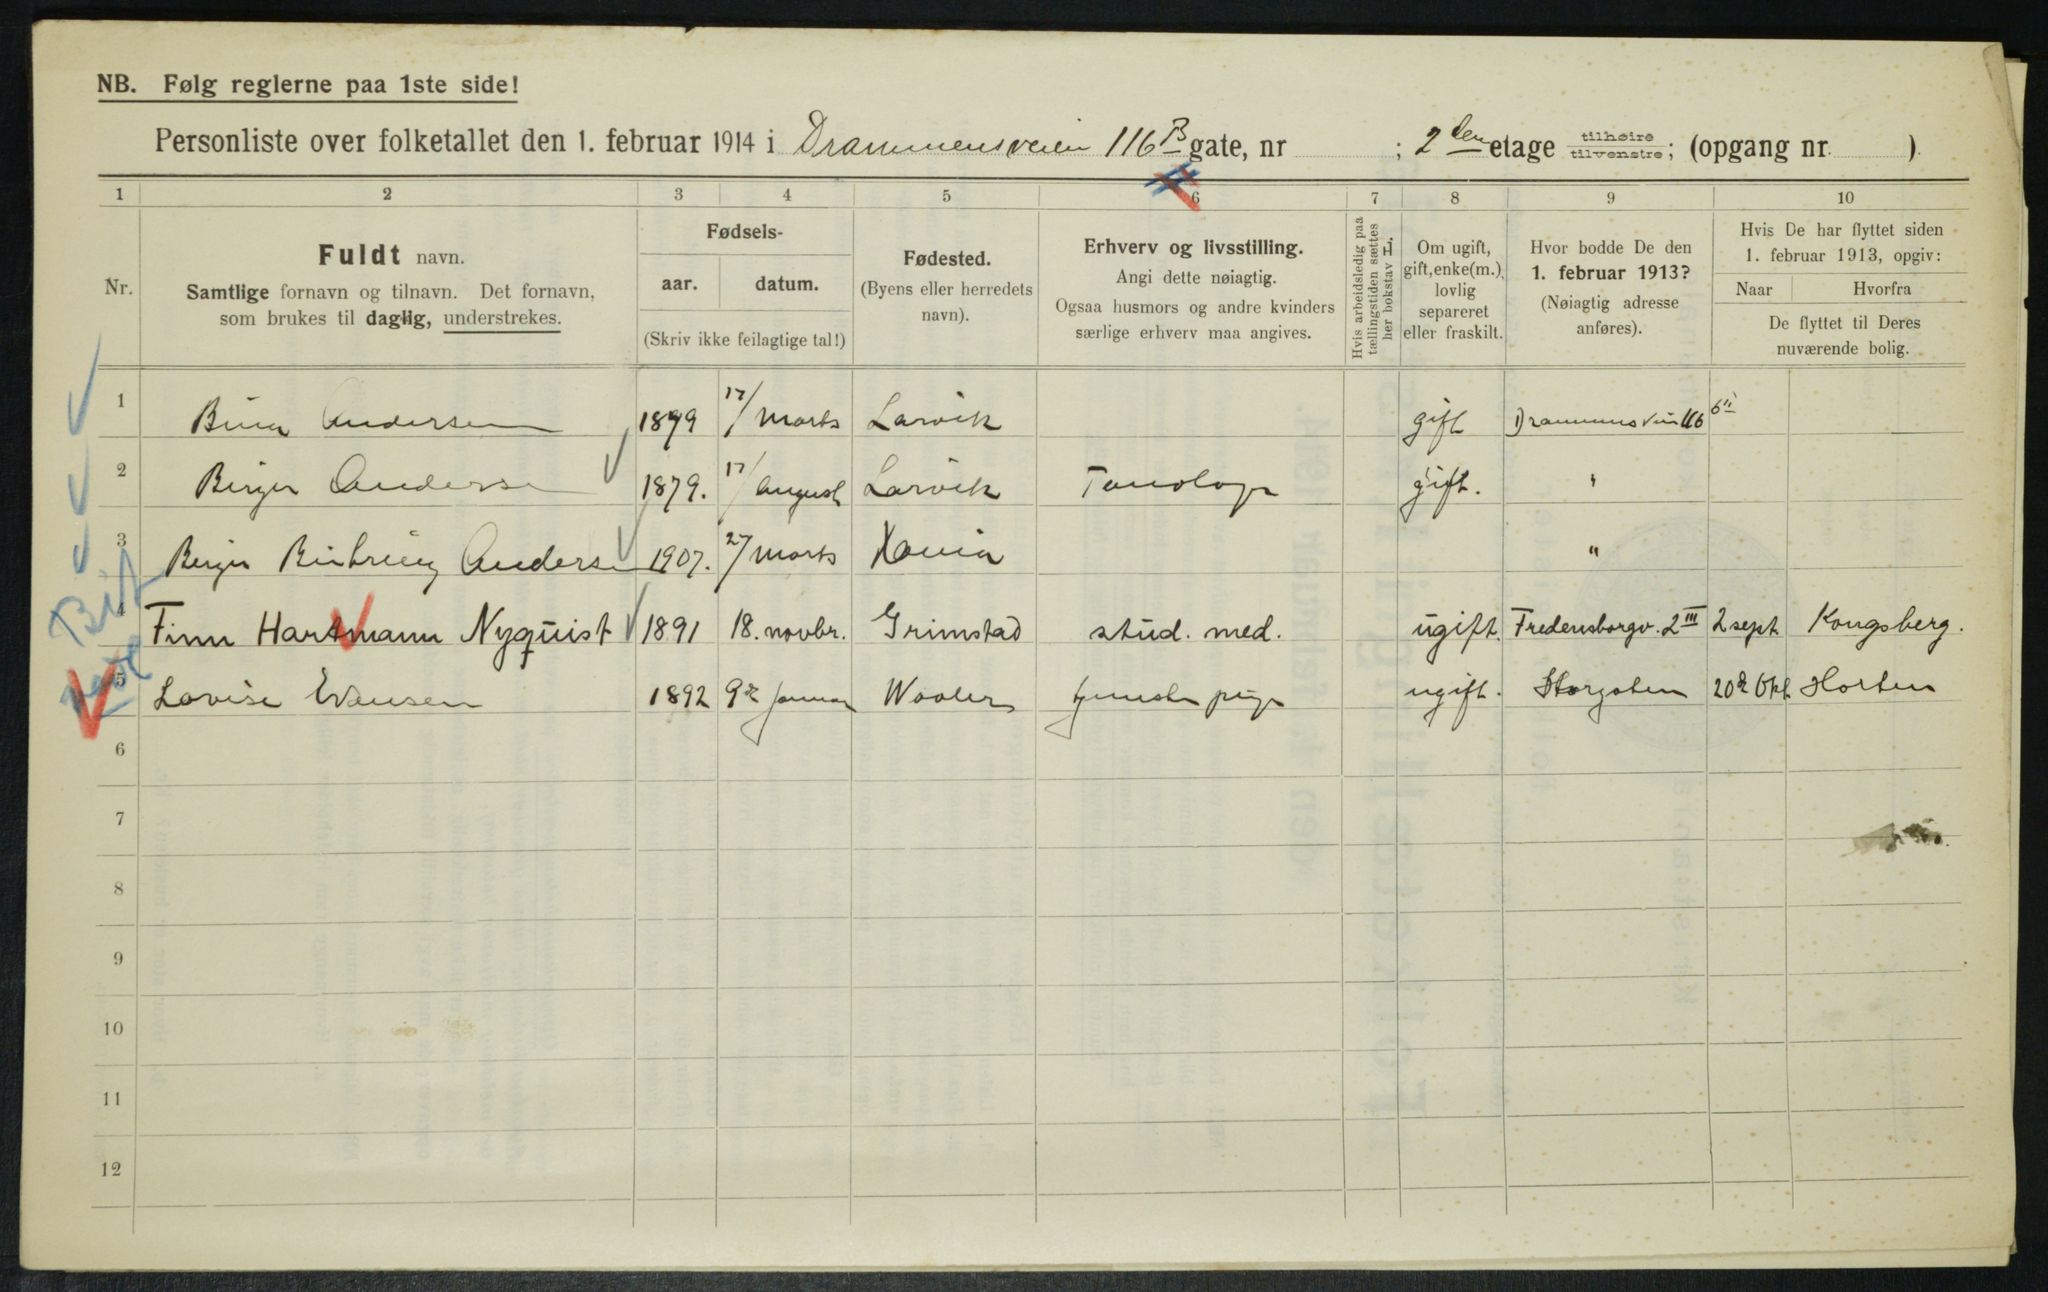 NB. Følg reglerne paa 1ste side!
Personliste over folketallet den 1. februar 1914 i Drammensveien 116 B gate, nr ; 2den etage tilhøire tilvenstre; (opgang nr. )
1 2 3 4 5 6 7 8 9 10
Nr.
Fuldt navn.
Samtlige fornavn og tilnavn. Det fornavn,
som brukes til daglig, understrekes.
Fødsels-
aar. datum.
(Skriv ikke feilagtige tal!)
Fødested.
(Byens eller herredets
navn).
Erhverv og livsstilling.
Angi dette nøiagtig.
Ogsaa husmors og andre kvinders
særlige erhverv maa angives.
Hvis arbeidsledig paa
tællingstiden sættes
her bokstav L.
Om ugift,
gift, enke(m.),
lovlig
separeret
eller fraskilt.
Hvor bodde De den
1. februar 1913?
(Nøiagtig adresse
anføres).
Hvis De har flyttet siden
1. februar 1913, opgiv:
Naar Hvorfra
De flyttet til Deres
nuværende bolig.
1 Andersen 1879 17/ Marts Larvik gift Drammensvein 116
2 Birger Andersen 1879. 17/ august Larvik gift. "
3 Birger Andersen 1907. 27/ Marts Xania "
4 Finn Hartmann Nyquist 1891 18. novbr. Grimstad stud. med. ugift. Fredensborgv. 2 III 2 sept Kongsberg.
5 Lovise Evensen 1892 9de Januar Waaler ugift. Storgaten 20de Okt Horten
6
7
8
9
10
11
12